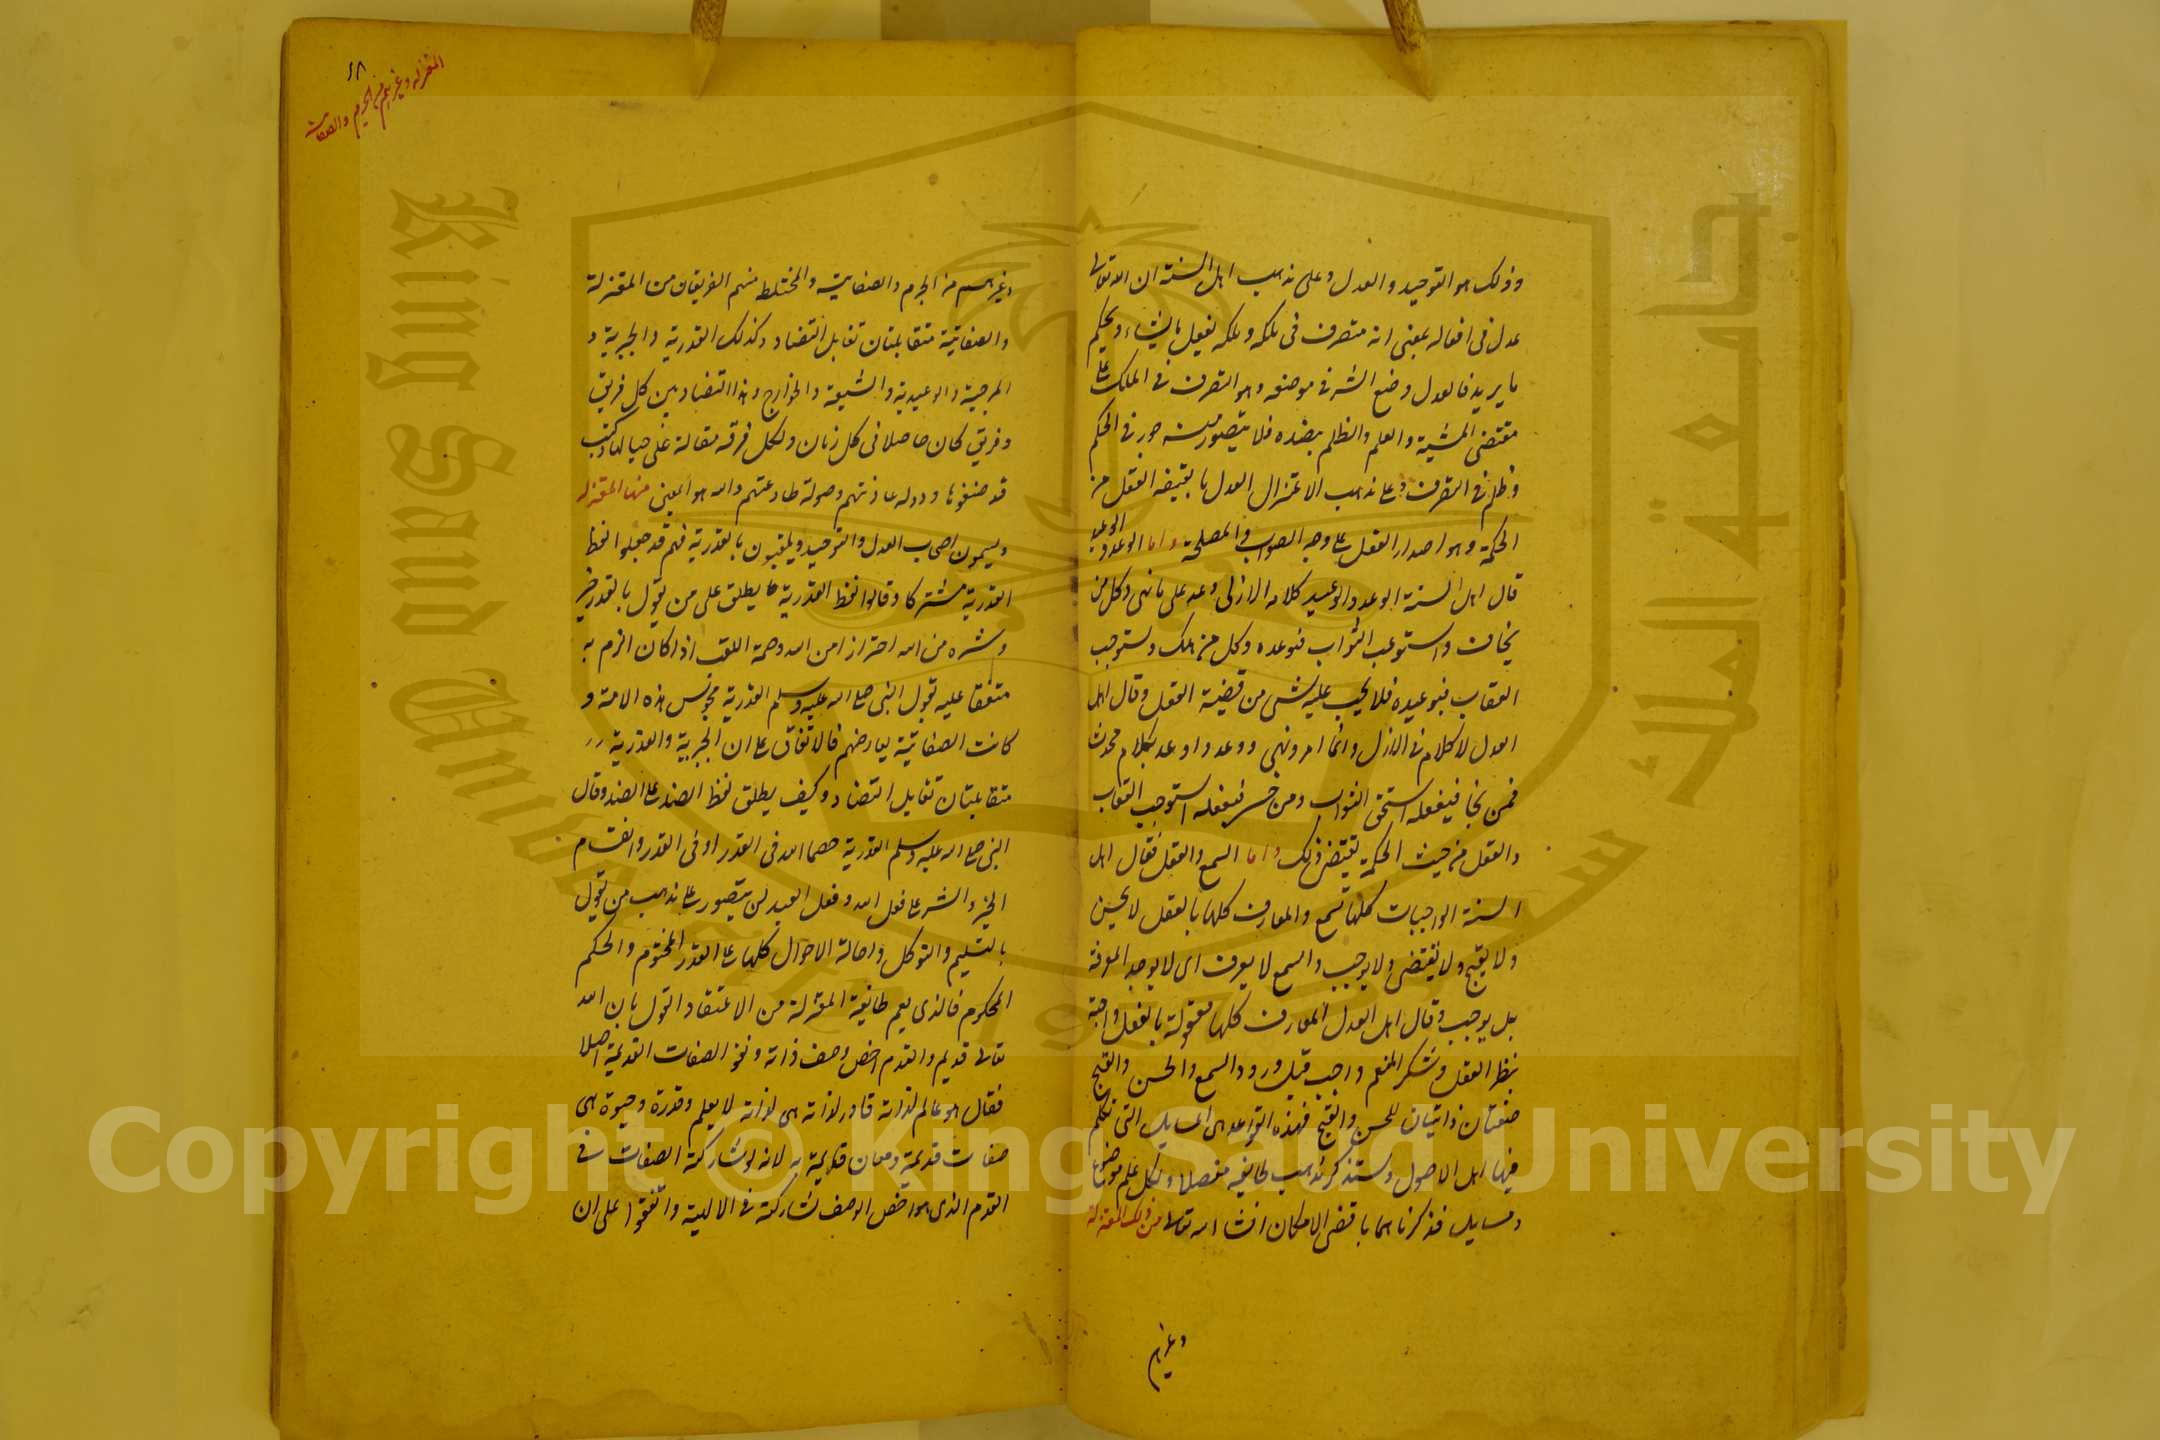 وذلك هو التوحيد والعدل وعلى مذهب اهل السنة ان الله تعالى
عدل فى افعاله بمعنى انه متصرف فى ملكه وملكه يفعل ما يشاء ويحكم
ما يريد فالعدل وضع الشىء فى موضعه وهو التصرف فى الملك على
مقتضى المشية والعلم والظلم بضده فلا يتصور منه جور فى الحكم
وظلم فى التصرف وعلى مذهب الاعتزال العدل ما يقتضيه العقل من
الحكمة وهو اصدار الفعل على وجه الصواب والمصلحة واما الوعد والوعيد
قال اهل السنة الوعد والوعيد كلامه الازلى وعد على ما نهى وكل من
نجا واستوعب الثواب فبوعده وكل من هلك واستوجب
العقاب فبوعيده فلا يجب عليه شى من قضية العقل وقال اهل
العدل لا كلام فى الازل وانما امر ونهى ووعد واوعد بكلام محدث
فمن نجا فبفعله استحق الثواب ومن خسر فبفعله استوجب العقاب
والعقل من حيث الحكمة يقتضى ذلك واما السمع والعقل فقال اهل
السنة الواجبات كلها بالسمع والمعارف كلها بالعقل لا يحسن
ولا يقبح ولا يقتضى ولا يوجب والسمع لا يعرف اى لا يوجد المعرفة
بل يوجب وقال اهل العدل المعارف كلها معقولة بالفعل واجبة
بنظر العقل وشكر المنعم واجب قبل ورود السمع والحسن والقبح
صفتان ذاتيتان للحسن والقبح فهذه القواعد هى المسايل التى تكلم
فيها اهل الاصول وستذكر مذهب طايفه مفصلا ولكل علم موضوع
ومسايل فذكرناهما باقصى الامكان انشا الله تعالى من ذلك المعتزلة
وغيرهم
٤٨
المعتزلة وغيرهم من الجرم والصفات
وغيرهم من الجرم والصفاتية والمختلط منهم الفريقان من المعتزلة
والصفاتية متقابلتان تقابل التضاد وكذلك القدرية والجبرية و
المرجية والوعيدية والشيعة والخوارج وهذا التضاد بين كل فريق
وفريق كان حاصلا فى كل زمان ولكل فرقه مقالة على حيالها وكتب
قد صنفوها ودوله عاونتهم وصولة طاوعتهم والله هو المعين منها المعتزله
ويسمون اصحاب العدل والتوحيد ويلقبون بالقدرية فهم قد جعلوا لفظ
القدرية مشتركا وقالوا لفظ القدرية يطلق على من يقول بالقدر خيره
وشره من الله احترازا من الله وصمة اللقب اذا كان الذم به
متفقا عليه قول النبى صلى الله عليه وسلم القدرية مجوس هذه الامة و
كانت الصفاتية يعارضهم فالاتفاق على ان الجبرية والقدرية
متقابلتان تقابل التضاد وكيف يطلق لفظ الضد على الضد وقال
النبى صلى الله عليه وسلم القدرية خصما الله فى القدر او فى القدر وانقسام
الخير والشر على فعل الله وفعل العبد لن يتصور على مذهب من يقول
بالتسليم والتوكل واحالة الاحوال كلها على القدر المختوم والحكم
المحكوم فالذى يعم طايفة المعتزلة من الاعتقاد القول بان الله
تعالى قديم والقدم اخص وصف ذاته ونفو الصفات القديمة اصلا
فقال هو عالم لذاته قادر لذاته حى لذاته لا بعلم وقدرة وحيوة هى
صفات قديمة ومعان قديمة به لانه لو شاركته الصفات فى
القدم الذى هو اخص الوصف لشاركته فى الالهية واتفقوا على ان
King Saud University
جامعة الملك سعود
1957
Copyright © King Saud University